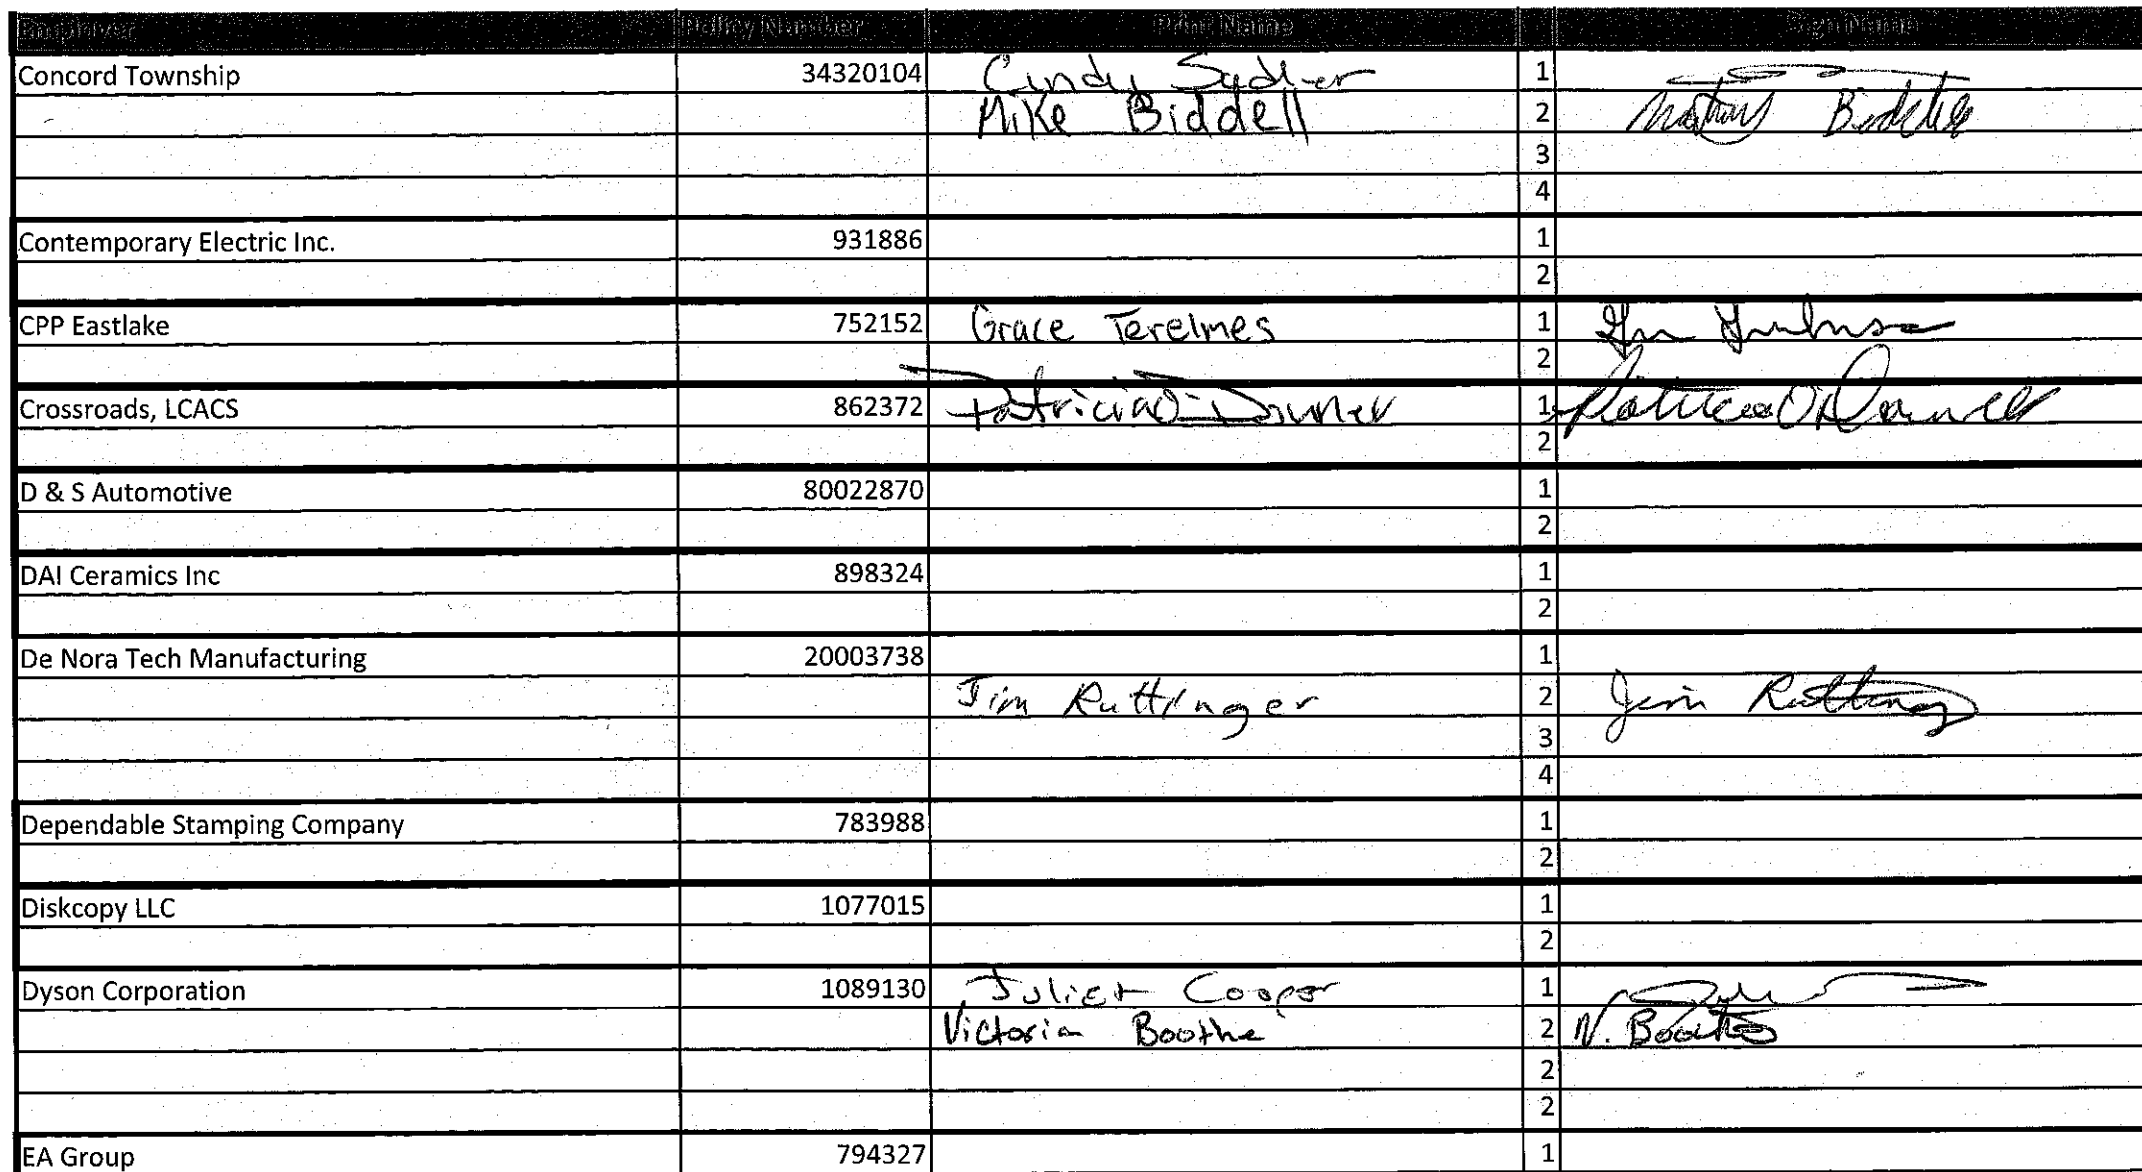 Employer Policy Number Print Name Sign Name
Concord Township 34320104 Cindy 1
Mike Biddell 2 Biddell
3
4
Contemporary Electric Inc. 931886 1
2
CPP Eastlake 752152 Grace Terelmes 1
2
Crossroads, LCACS 862372 Patricia 1
2
D & S Automotive 80022870 1
2
DAI Ceramics Inc 898324 1
2
De Nora Tech Manufacturing 20003738 1
Jim Ruttinger 2 Jim Ruttinger
3
4
Dependable Stamping Company 783988 1
2
Diskcopy LLC 1077015 1
2
Dyson Corporation 1089130 Juliet Cooper 1
Victoria Boothe 2 V. Boothe
2
2
EA Group 794327 1